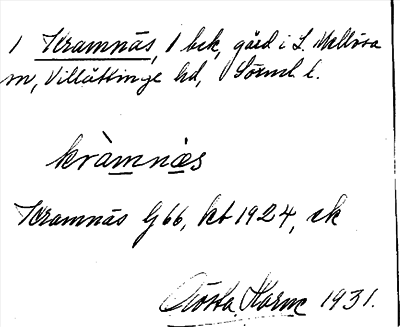 1 Kramnäs, 1 bek, gård i L. Mellösa
sn, Villåttinge hd, Sörml. l.
kràmnä̀s
Kramnäs G 66, kb 1924, ek
Gösta 1931.